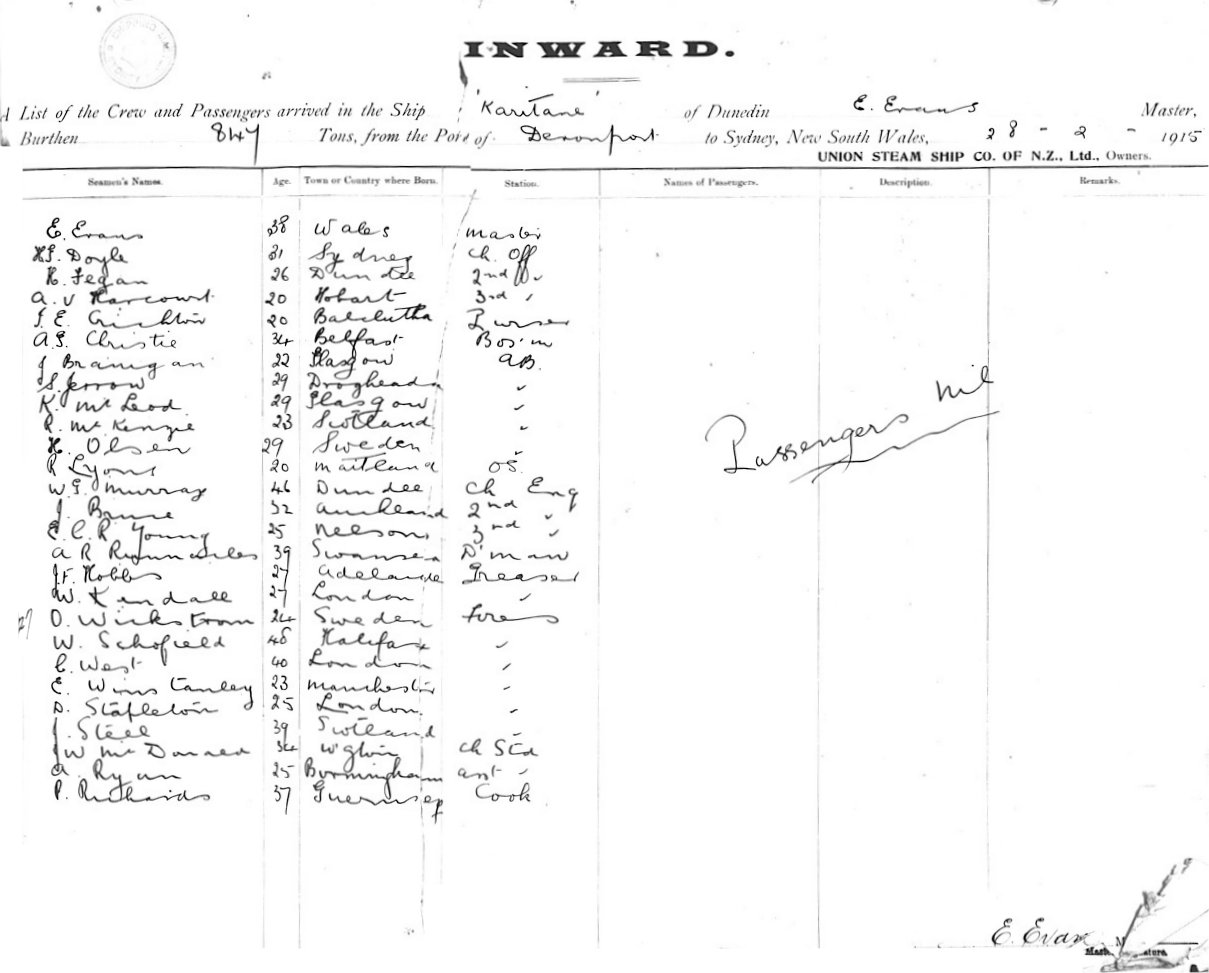 INWARD.
A List of the Crew and Passengers arrived in the Ship 'Karitane' of Dunedin E. Evans Master,
Burthen 847 Tons, from the Port of Devonport to Sydney, New South Wales, 28 - 2 - 1915
UNION STEAM SHIP CO. OF N.Z., Ltd., Owners.
Seamen's Names. Age. Town or Country where Born. Station. Names of Passengers. Description. Remarks.
E. Evans 38 Wales Master
Doyle 31 Sydney Ch. Off
H. Fegan 26 Dundee 2nd
A. V Harcourt 20 Hobart 3rd "
E. Crichton 20 Balclutha Purser
A.G. Christie 34 Belfast Bos'm
J Branigan 22 Glasgow AB.
S. Jerrow 29 Drogheada "
K. McLeod 29 Glasgow "
R. McKenzie 23 Scotland "
H. Olsen 29 Sweden "
R Lyons 20 Maitland OS.
W.G. Murray 46 Dundee Ch Eng
J. Bruce 32 Auckland 2nd "
E. C. R Young 25 Nelson 3rd "
A R 39 Swansea D'man
J.F. Hobbs 27 Adelaide Greaser
W. Kendall 27 London "
O. Wickstrom 24 Sweden Fires
W. Schofield 48 Halifax "
C. West 40 London "
E. Winstanley 23 Manchester "
D. Stapleton 25 London "
J. Steel 39 Scotland "
JW McDonald 34 W'gton Ch Std
A. Ryan 25 Birmingham asst "
P. Richards 37 Guernsey Cook
Passengers nil
E. Evans